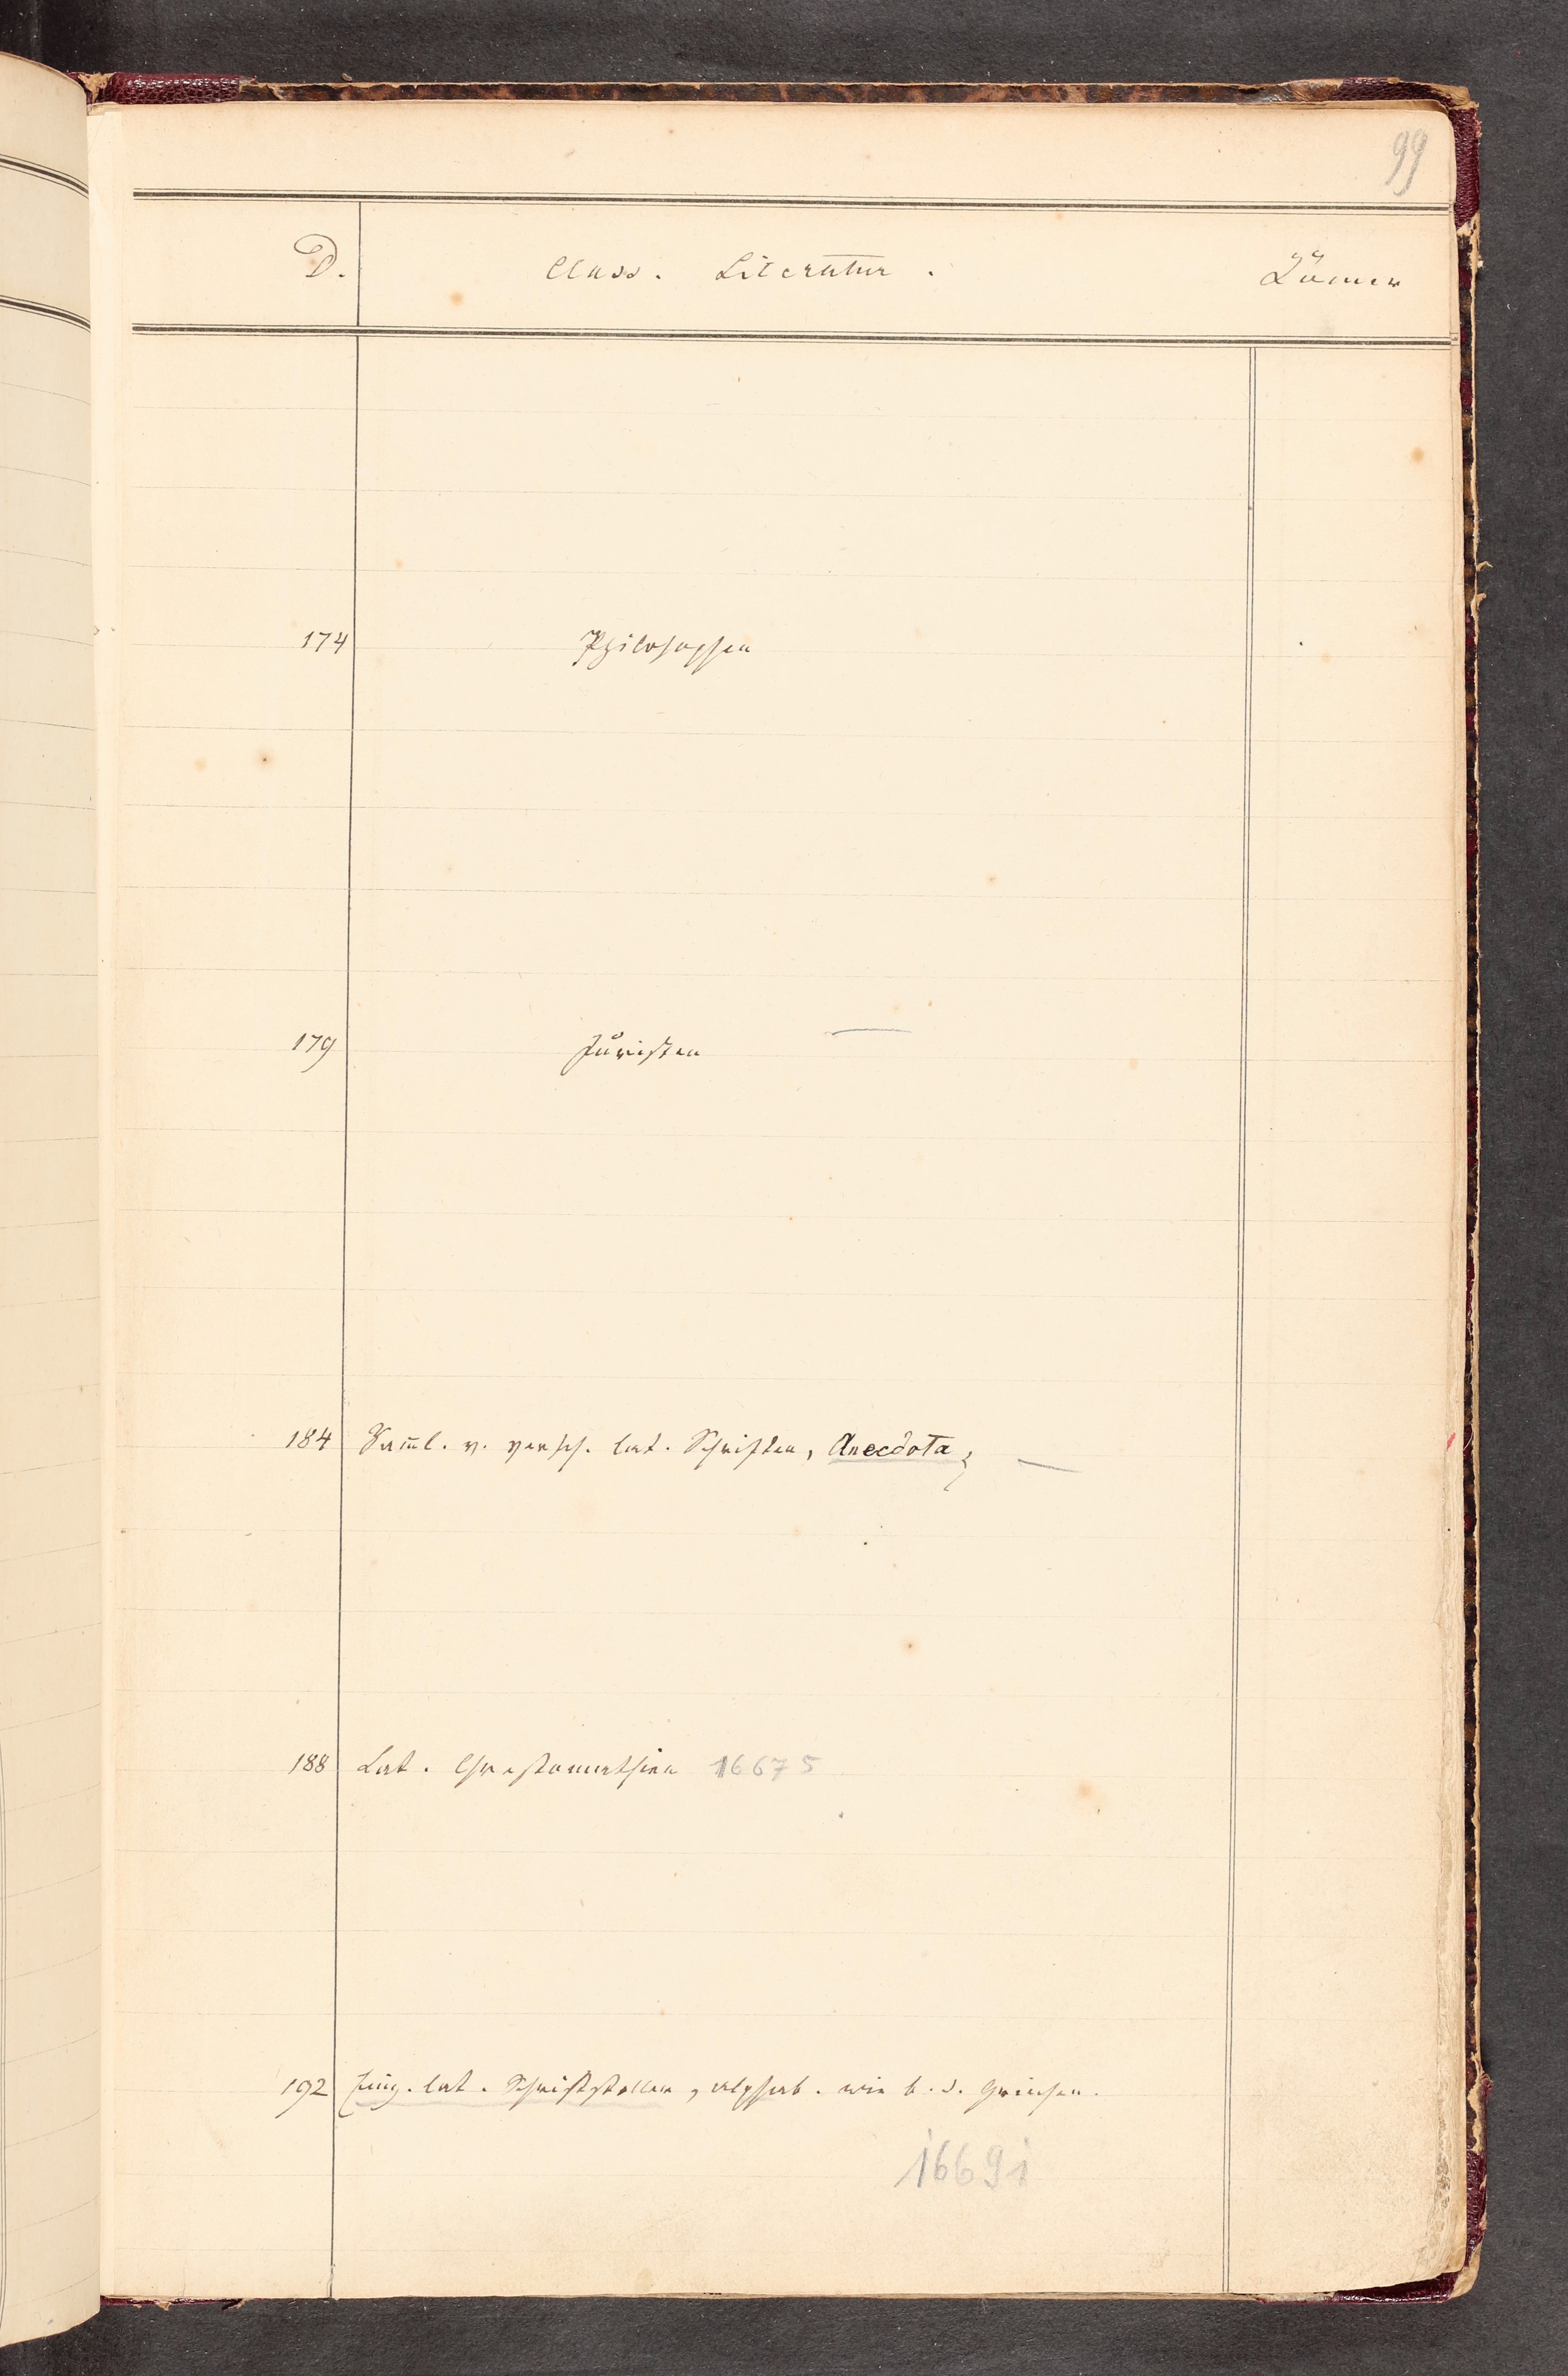 99
D. Class. Literatur. Römer
174 Philosophen
179 Juristen
184 Saml. v. versch. lat. Schriften, Anecdota,
188 Lat. Chrestomathien 16675
192 Einz. lat. Schriftsteller, alphab. wie b. d. Griechen.
16691